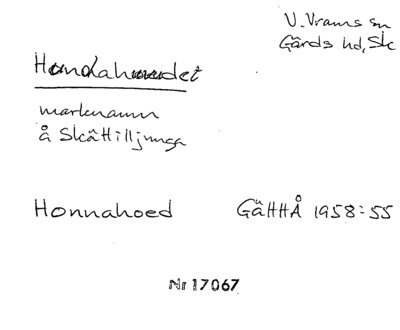 V. Vrams sn
Gärds hd, Sk
Hundahuvudet
marknamn
å Skättilljunga
Honnahoed GäHHÅ 1958:55
Nr 17067